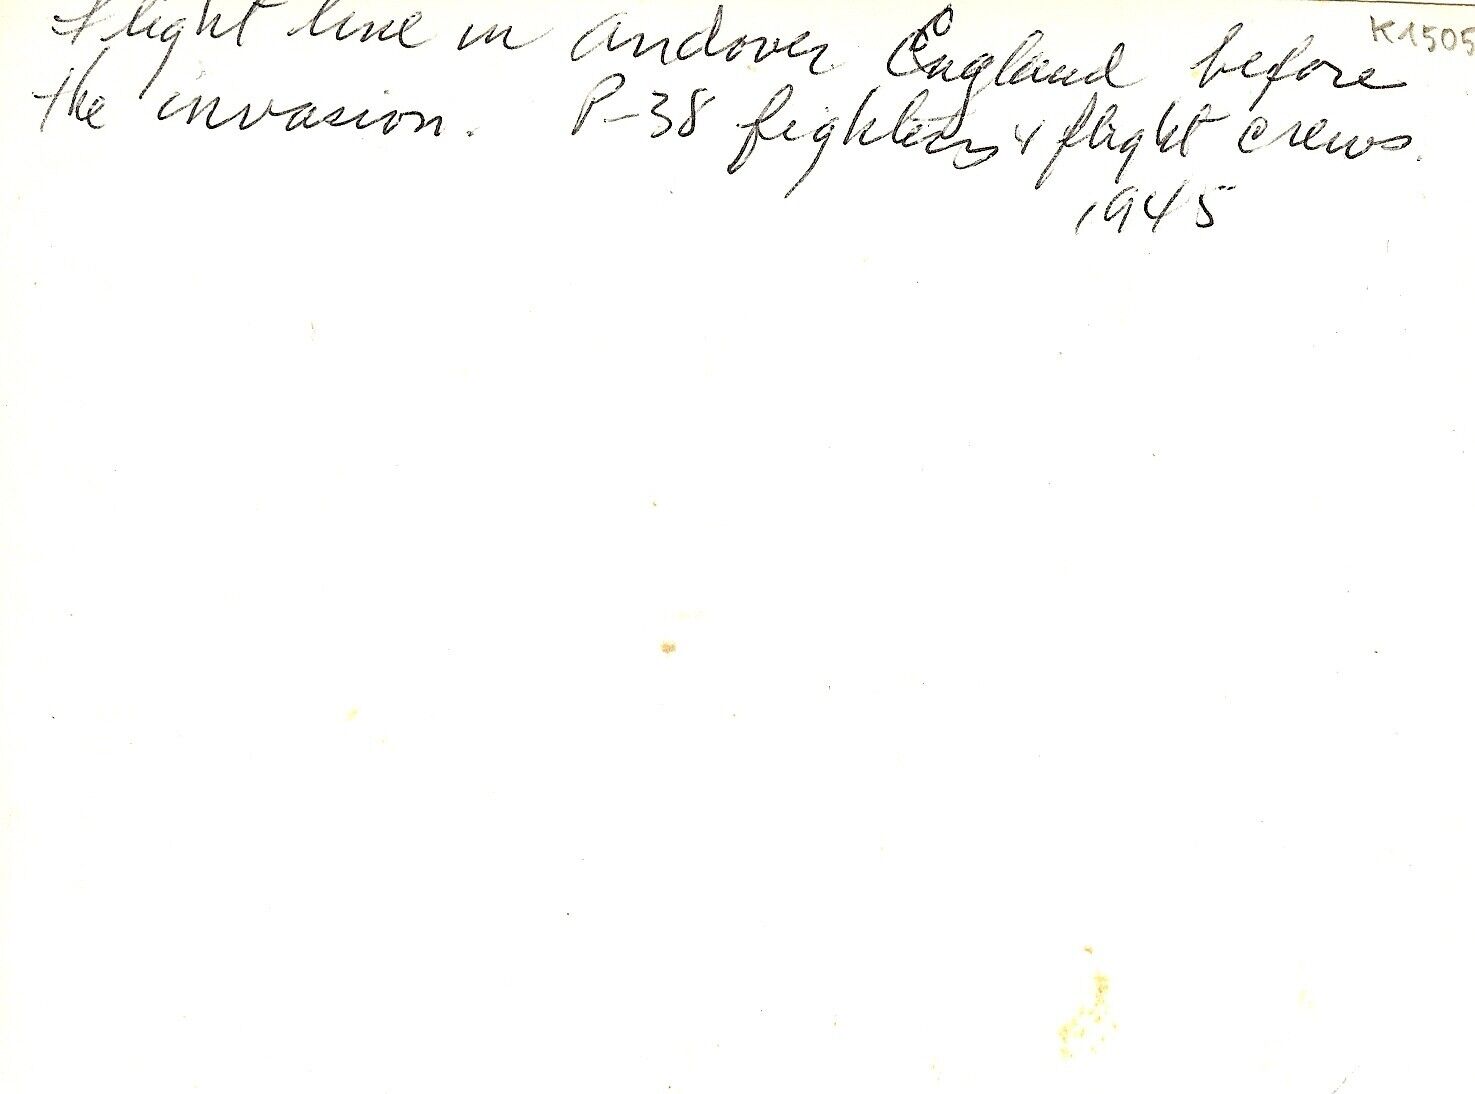 K1505
Flight line in Andover England before
the invasion. P-38 fighters & flight crews.
1945